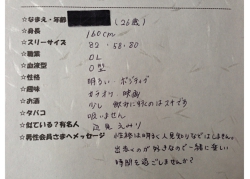 ☆なまえ・年齢 (26歳)
☆身長 160cm
☆スリーサイズ 82・58・80
☆職業 OL
☆血液型 O型
☆性格 明るい ポジティブ
☆趣味 カラオケ 映画
☆お酒 少し 飲みに行くのはスキです
☆タバコ 吸いません
☆似ている?有名人 辺見えみり
☆男性会員さまへメッセージ 性格は明るく人見知りなどはしません。
出歩くのが好きなので一緒に楽しい
時間を過ごしませんか?